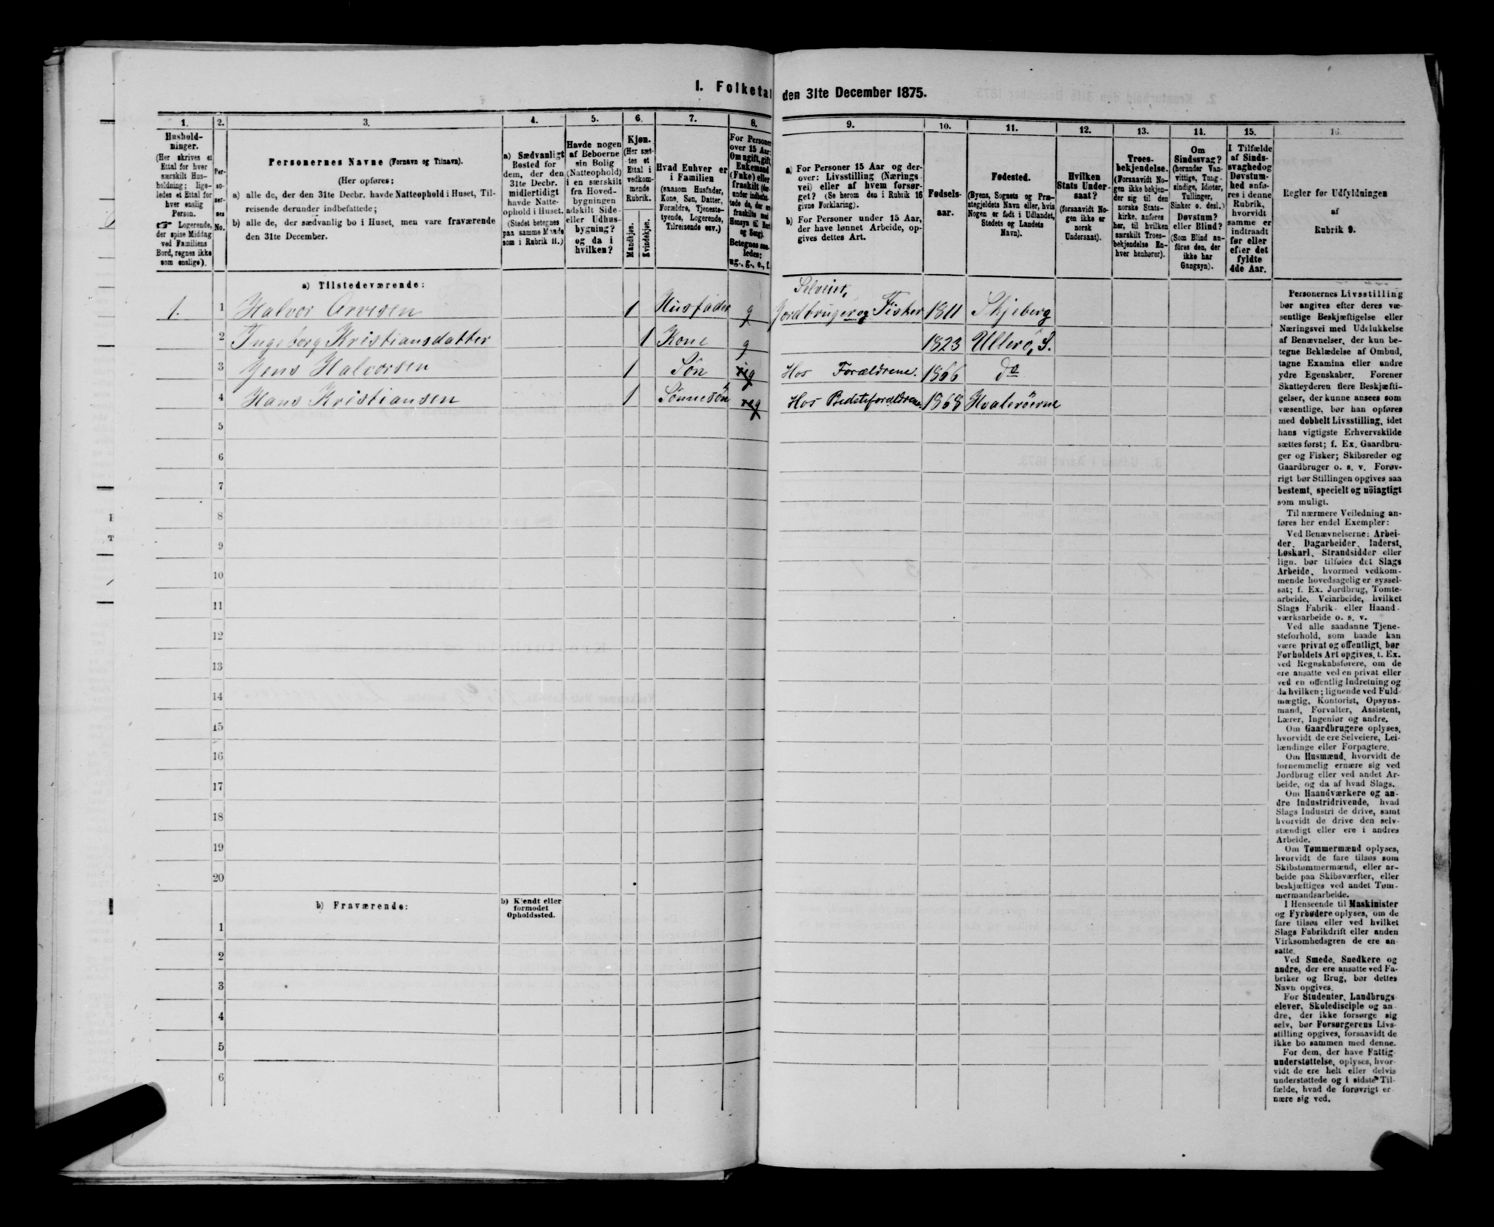 1. Folketal
den 31te December 1875.
1.
2.
3.
4.
5.
6.
7.
8.
9.
10.
11.
12.
13.
14.
15.
16.
Hushold-
ninger.
(Her skrives et
Ettal for hver
særskilt Hus-
holdning; lige-
ledes et Ettal for
hver enslig
Person.
☞ Logerende,
der spise Middag
ved Familiens
Bord, regnes ikke
som enslige).
Per-
so-
ner-
nes
No.
Personernes Navne (Fornavn og Tilnavn).
(Her opføres:
a) alle de, der den 31te Decbr. havde Natteophold i Huset, Til-
reisende derunder indbefattede;
b) alle de, der sædvanlig bo i Huset, men vare fraværende
den 31te December.
a) Sædvanligt
Bosted for
dem, der den
31te Decbr.
midlertidigt
havde Natte-
ophold i Huset.
(Stedet betegnes
paa samme Maade
som i Rubrik 11.)
Havde nogen
af Beboerne
sin Bolig
(Natteophold)
i en særskilt
fra Hoved-
bygningen
adskilt Side-
eller Udhus-
bygning?
og da i
hvilken?
Kjøn.
(Her sæt-
tes et
Ettal i
vedkom-
mende
Rubrik.
Mandkjøn.
Kvindekjøn.
Hvad Enhver er
i Familien
(saasom Husfader,
Kone, Søn, Datter,
Forældre, Tjeneste-
tyende, Logerende,
Tilreisende osv.)
For Personer
over 15 Aar:
Om ugift, gift,
Enkemand
(Enke) eller
fraskilt
Betegnes saa-
ledes:
ug., g., e., f.
a) For Personer 15 Aar og der-
over: Livsstilling (Nærings-
vei) eller af hvem forsør-
get? (Se herom den i Rubrik 16
givne Forklaring).
b) For Personer under 15 Aar,
der have lønnet Arbeide, op-
gives dettes Art.
Fødsels-
aar.
Fødested.
(Byens, Sognets og Præ-
stegjeldets Navn eller, hvis
Nogen er født i Udlandet,
Stedets og Landets
Navn).
Hvilken
Stats Under-
saat?
(forsaavidt No-
gen ikke er
norsk
Undersaat).
Troes-
bekjendelse.
(Forsaavidt No-
gen ikke bekjen-
der sig til den
norske Stats-
kirke, anføres
her, til hvilken
særskilt Troes-
bekjendelse En-
hver henhører).
Om
Sindssvag?
(herunder Van-
vittige, Tung-
sindige, Idioter,
Tullinger,
Sinker o. desl.)
Døvstum?
eller Blind?
(Som Blind an-
føres den, der
ikke har
Gangsyn).
I Tilfælde
af Sinds-
svaghed og
Døvstum-
hed anfø-
res i denne
Rubrik,
hvorvidt
samme er
indtraadt
før eller
efter det
fyldte
4de Aar.
Regler for Udfyldningen
af
Rubrik 9.
a) Tilstedeværende:
Selveier,
1. 1 Halvor Arvesen 1 Husfader g Jordbruger og Fisker 1811 Skjeberg
2 Ingeborg Kristiansdatter 1 Kone g 1823 Ullerø, S.
3 Jens Halvorsen 1 Søn ug Hos Forældrene. 1866 do
4 Hans Kristiansen 1 Sønnesøn ug Hos Bedsteforældrene 1868 Hvalerøerne
5
6
7
8
9
10
11
12
13
14
15
16
17
18
19
20
b) Fraværende:
b) Kjendt eller
formodet
Opholdssted.
1
2
3
4
5
6
Personernes Livsstilling
bør angives efter deres væ-
sentlige Beskjæftigelse eller
Næringsvei med Udelukkelse
af Benævnelser, der kun be-
tegne Beklædelse af Ombud,
tagne Examina eller andre
ydre Egenskaber. Forener
Skatteyderen flere Beskjæfti-
gelser, der kunne ansees som
væsentlige, bør han opføres
med dobbelt Livsstilling, idet
hans vigtigste Erhvervskilde
sættes først; f. Ex. Gaardbru-
ger og Fisker; Skibsreder og
Gaardbruger o. s. v. Forøv-
rigt bør Stillingen opgives saa
bestemt, specielt og nöiagtigt
som muligt.
Til nærmere Veiledning an-
føres her endel Exempler:
Ved Benævnelserne: Arbei-
der, Dagarbeider, Inderst,
Løskarl, Strandsidder eller
lign. bør tilføies det Slags
Arbeide, hvormed vedkom-
mende hovedsagelig er syssel-
sat; f. Ex. Jordbrug, Tomte-
arbeide, Veiarbeide, hvilket
Slags Fabrik- eller Haand-
værksarbeide o. s. v.
Ved alle saadanne Tjene-
steforhold, som baade kan
være privat og offentligt, bør
Forholdets Art opgives, f. Ex.
ved Regnskabsførere, om de
ere ansatte ved en privat eller
ved en offentlig Indretning og
da hvilken; lignende ved Fuld-
mægtig, Kontorist, Opsyns-
mand, Forvalter, Assistent,
Lærer, Ingeniør og andre.
Om Gaardbrugere oplyses,
hvorvidt de ere Selveiere, Lei-
lændinge eller Forpagtere.
Om Husmænd, hvorvidt de
fornemmelig ernære sig ved
Jordbrug eller ved andet Ar-
beide, og da af hvad Slags.
Om Haandværkere og an-
dre Industridrivende, hvad
Slags Industri de drive, samt
hvorvidt de drive den selv-
stændigt eller ere i andres
Arbeide.
Om Tømmermænd oplyses,
hvorvidt de fare tilsøs som
Skibstømmermænd, eller ar-
beide paa Skibsværfter, eller
beskjæftiges ved andet Tøm-
mermandsarbeide.
I Henseende til Maskinister
og Fyrbødere oplyses, om de
fare tilsøs eller ved hvilket
Slags Fabrikdrift eller anden
Virksomhedsgren de ere an-
satte.
Ved Smede, Snedkere og
andre, der ere ansatte ved Fa-
briker og Brug, bør dettes
Navn opgives.
For Studenter, Landbrugs-
elever, Skoledisciple og an-
dre, der ikke forsørge sig
selv, bør Forsørgerens Livs-
stilling opgives, forsaavidt de
ikke bo sammen med denne.
For dem, der have Fattig-
understøttelse, oplyses, hvor-
vidt de ere helt eller delvis
understøttede og i sidste Til-
fælde, hvad de forøvrigt er-
nære sig ved.